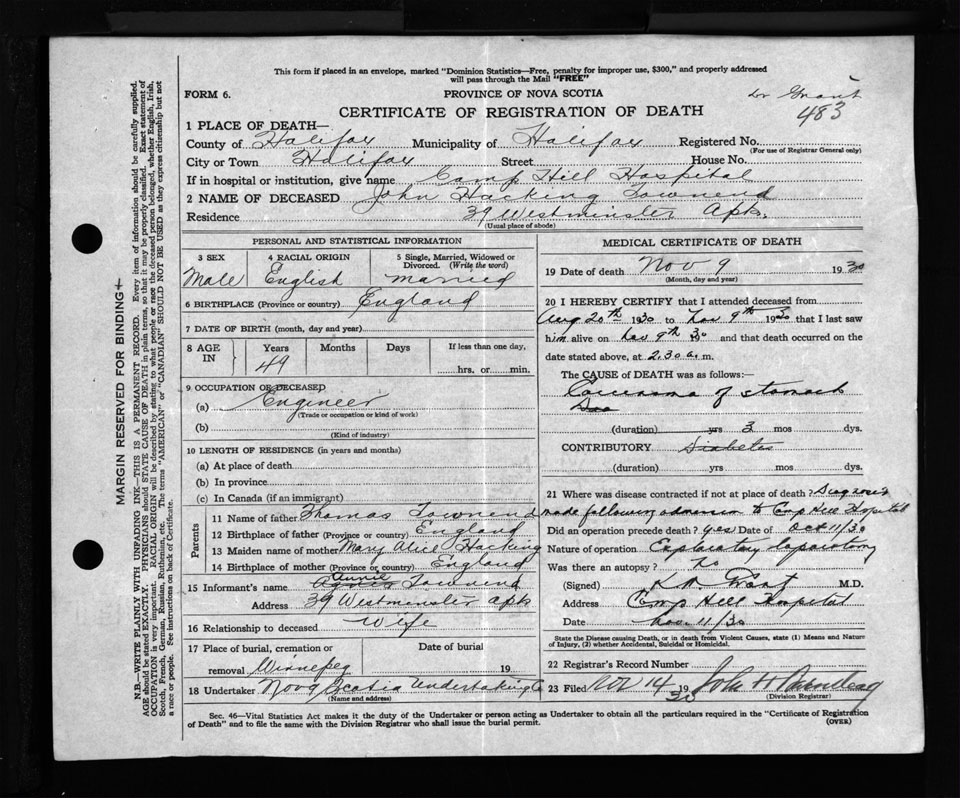 This form if placed in an envelope, marked "Dominion Statistics—Free, penalty for improper use, $300," and properly addressed
will pass through the Mail "FREE"
FORM 6.
PROVINCE OF NOVA SCOTIA
Dr Grant
483
CERTIFICATE OF REGISTRATION OF DEATH
1 PLACE OF DEATH—
County of Halifax Municipality of Halifax Registered No.
(For use of Registrar General only)
City or Town Halifax Street House No.
If in hospital or institution, give name Camp Hill Hospital
2 NAME OF DECEASED John Hacking Townend
Residence 39 Westminster Apts.
(Usual place of abode)
PERSONAL AND STATISTICAL INFORMATION
3 SEX Male
4 RACIAL ORIGIN English
5 Single, Married, Widowed or Divorced. (Write the word) married
6 BIRTHPLACE (Province or country) England
7 DATE OF BIRTH (month, day and year)
8 AGE IN Years 49 Months Days If less than one day, hrs. or min.
9 OCCUPATION OF DECEASED
(a) Engineer
(Trade or occupation or kind of work)
(b)
(Kind of industry)
10 LENGTH OF RESIDENCE (in years and months)
(a) At place of death
(b) In province
(c) In Canada (if an immigrant)
Parents
11 Name of father Thomas Townend
12 Birthplace of father (Province or country) England
13 Maiden name of mother Mary Alice Hacking
14 Birthplace of mother (Province or country) England
15 Informant's name Annie Townend
Address 39 Westminster apts
16 Relationship to deceased Wife
17 Place of burial, cremation or removal Winnepeg
Date of burial 19
18 Undertaker Nova Scotia Undertaking Co
(Name and address)
MEDICAL CERTIFICATE OF DEATH
19 Date of death Nov 9 1930
(Month, day and year)
20 I HEREBY CERTIFY that I attended deceased from
Aug 20th 1930 to Nov 9th 1930 that I last saw
him alive on Nov 9th 30 and that death occurred on the
date stated above, at 2.30 a.m.
The CAUSE of DEATH was as follows:
Carcinoma of stomach
(duration) yrs 3 mos dys.
CONTRIBUTORY Diabetes
(duration) yrs mos dys.
21 Where was disease contracted if not at place of death? Diagnosis
made following admission to Camp Hill Hospital
Did an operation precede death? yes Date of Oct 11/30
Nature of operation Exploratory laparotomy
Was there an autopsy? no
(Signed) Grant M.D.
Address Camp Hill Hospital
Date Nov. 11/30
State the Disease causing Death, or in death from Violent Causes, state (1) Means and Nature
of Injury, (2) whether Accidental, Suicidal or Homicidal.
22 Registrar's Record Number
23 Filed Nov 14 1930 John H
(Division Registrar)
Sec. 46—Vital Statistics Act makes it the duty of the Undertaker or person acting as Undertaker to obtain all the particulars required in the "Certificate of Registration
of Death" and to file the same with the Division Registrar who shall issue the burial permit.
(OVER)
MARGIN RESERVED FOR BINDING
N.B.—WRITE PLAINLY WITH UNFADING INK—THIS IS A PERMANENT RECORD. Every item of information should be carefully supplied.
AGE should be stated EXACTLY. PHYSICIANS should STATE CAUSE OF DEATH in plain terms, so that it may be properly classified. Exact statement of
OCCUPATION is very important. RACIAL ORIGIN will be described by stating to what people or race the deceased person belonged, whether English, Irish,
Scotch, French, German, Russian, Ruthenian, etc. The terms "AMERICAN" or "CANADIAN" SHOULD NOT BE USED as they express citizenship but not
a race or people. See instructions on back of Certificate.